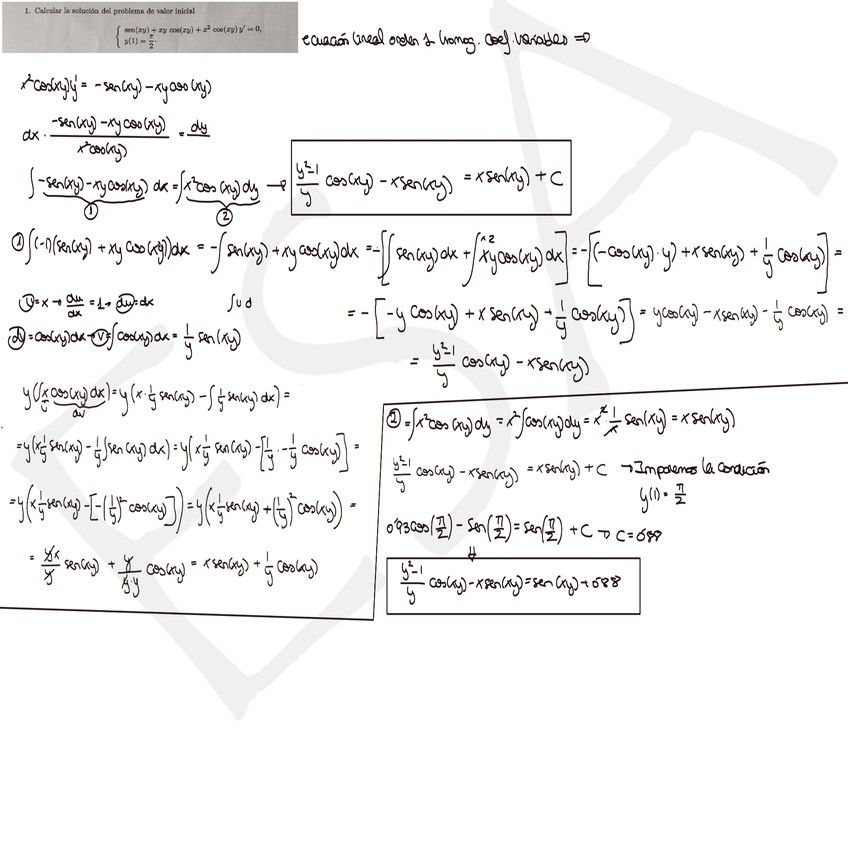 1. Calcular la solución del problema de valor inicial
{ sen(xy) + xy cos(xy) + x² cos(xy) y' = 0,
y(1) = π/2.
ecuación lineal orden 1 homog. coef. variables ⇒
x²cos(xy)y' = -sen(xy) - xy cos(xy)
dx · (-sen(xy) - xy cos(xy))/(x²cos(xy)) = dy
∫ -sen(xy) - xy cos(xy) dx = ∫ x² cos(xy) dy → (y²-1)/y cos(xy) - x sen(xy) = x sen(xy) + C
① ②
① ∫(-1)(sen(xy) + xy cos(xy))dx = -∫ sen(xy) + xy cos(xy) dx = -[∫ sen(xy) dx + ∫ xy cos(xy) dx] = -[(-cos(xy)·y) + x sen(xy) + 1/y cos(xy)] =
U = x → du/dx = 1 → du = dx ∫ u d
dv = cos(xy)dx → V = ∫ cos(xy)dx = 1/y sen(xy)
= -[-y cos(xy) + x sen(xy) + 1/y cos(xy)] = y cos(xy) - x sen(xy) - 1/y cos(xy) =
= (y²-1)/y cos(xy) - x sen(xy)
y(∫x cos(xy) dx) = y(x · 1/y sen(xy) - ∫ 1/y sen(xy) dx) =
u dv
= y(x 1/y sen(xy) - 1/y ∫ sen(xy) dx) = y(x 1/y sen(xy) - [1/y · -1/y cos(xy)] =
= y(x 1/y sen(xy) - [-(1/y)² cos(xy)]) = y(x 1/y sen(xy) + (1/y)² cos(xy)) =
= yx/y sen(xy) + y/y·y cos(xy) = x sen(xy) + 1/y cos(xy)
② = ∫ x² cos(xy) dy = x² ∫ cos(xy) dy = x² 1/x sen(xy) = x sen(xy)
(y²-1)/y cos(xy) - x sen(xy) = x sen(xy) + C → Imponemos la condición
y(1) = π/2
0'93 cos(π/2) - sen(π/2) = sen(π/2) + C → C = 0'88
⇓
(y²-1)/y cos(xy) - x sen(xy) = sen(xy) + 0'88
ESA